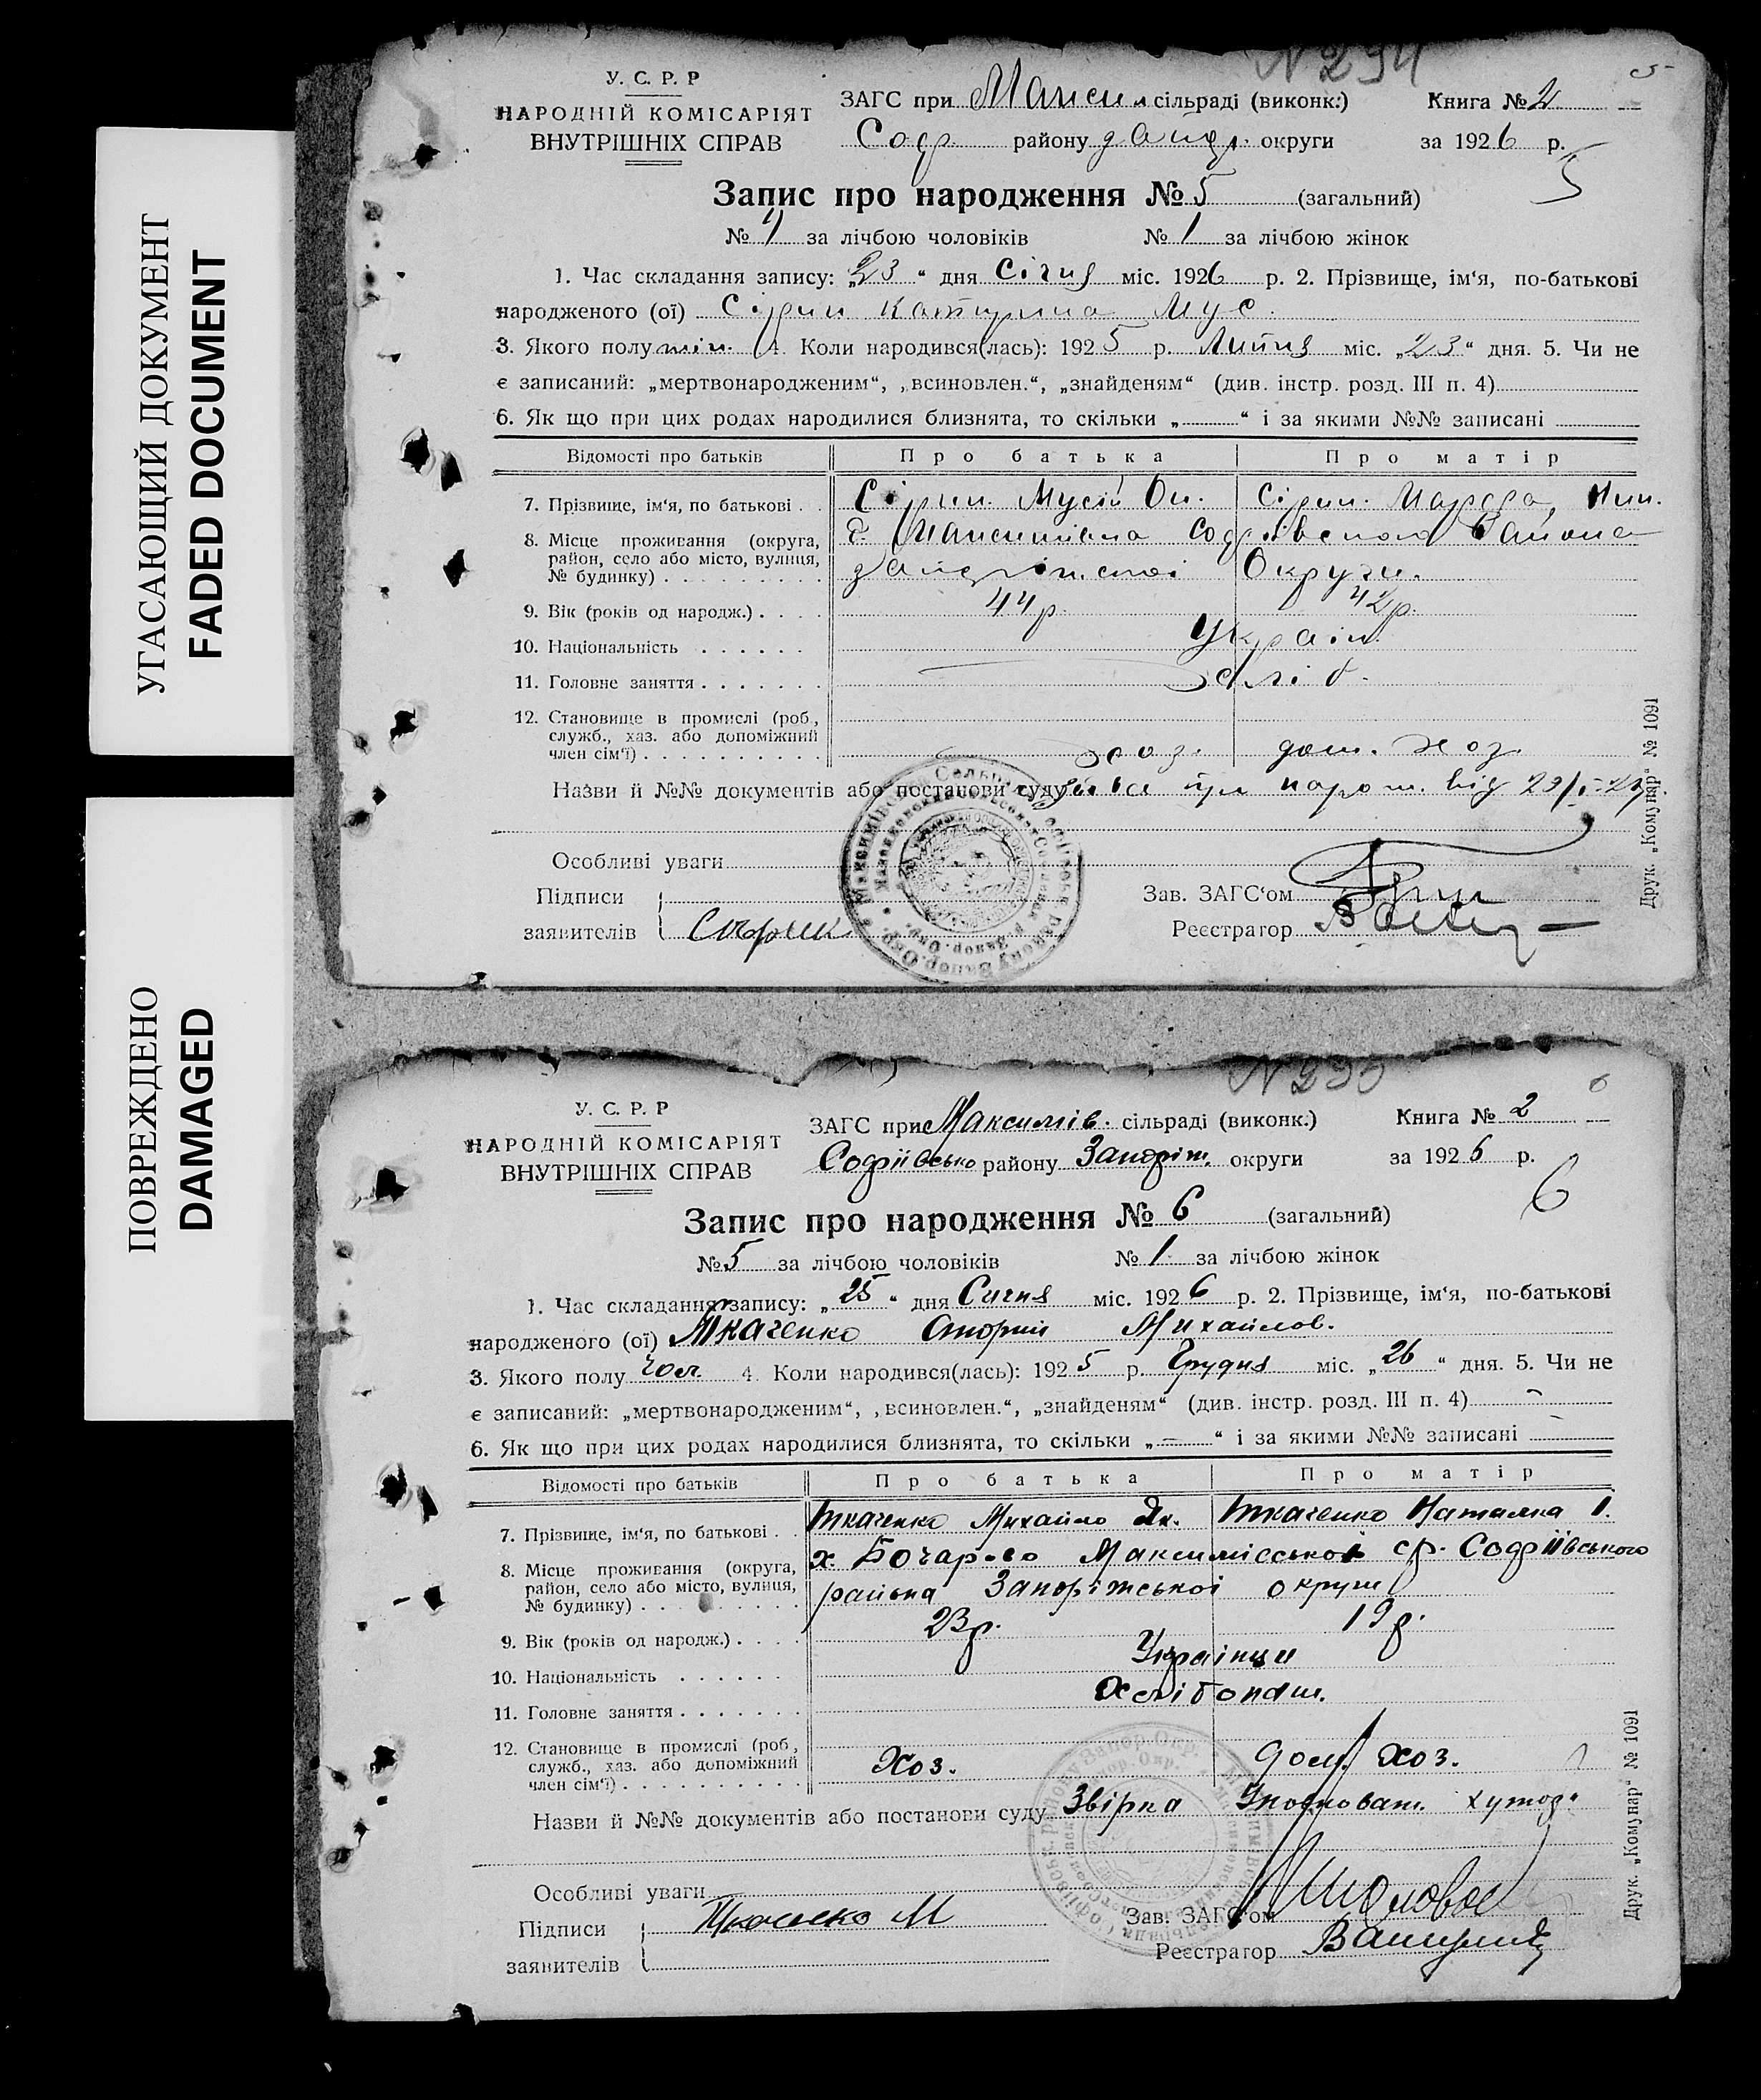 УГАСАЮЩИЙ ДОКУМЕНТ
FADED DOCUMENT
ПОВРЕЖДЕНО
DAMAGED
N 294
5
У. С. Р. Р
НАРОДНІЙ КОМІСАРІЯТ
ВНУТРІШНІХ СПРАВ
ЗАГС при Максим сільраді (виконк.) Книга № 2
Соф. району Запор. округи за 1926 р.
5
Запис про народження № 5 (загальний)
№ 4 за лічбою чоловіків № 1 за лічбою жінок
1. Час складання запису: „23“ дня Січня міс. 1926 р. 2. Прізвище, ім‘я, по-батькові
народженого (ої) Сірик Катирина Мус.
3. Якого полу жін. 4. Коли народився(лась): 1925 р. Липня міс. „23“ дня. 5. Чи не
є записаний: „мертвонародженим“, „всиновлен.“, „знайденям“ (див. інстр. розд. III п. 4)
6. Як що при цих родах народилися близнята, то скільки „ “ і за якими №№ записані
Відомості про батьків Про батька Про матір
7. Прізвище, ім‘я, по батькові . . Сірик. Мусій Сірик.
8. Місце проживання (округа,
район, село або місто, вулиця,
№ будинку) . . . . . . . . . Округи.
9. Вік (років од народж.) . . . . 44 р. 42 р.
10. Національність . . . . . . Україн.
11. Головне заняття . . . . . . . Хліб.
12. Становище в промислі (роб.,
служб., хаз. або допоміжний
член сім‘ї) . . . . . . . . . . Хоз. дом. хоз.
Назви й №№ документів або постанови суду
Особливі уваги
Підписи
заявителів Сирик
Зав. ЗАГС‘ом
Реєстратор
Друк. „Комунар“ № 1091
N 290
6
У. С. Р. Р
НАРОДНІЙ КОМІСАРІЯТ
ВНУТРІШНІХ СПРАВ
ЗАГС при Максимів. сільраді (виконк.) Книга № 2
Софіівсько району Запоріж. округи за 1926 р.
6
Запис про народження № 6 (загальний)
№ 5 за лічбою чоловіків № 1 за лічбою жінок
1. Час складання запису: „25“ дня Сичня міс. 1926 р. 2. Прізвище, ім‘я, по-батькові
народженого (ої) Ткаченко Михайлов.
3. Якого полу чол. 4. Коли народився(лась): 1925 р. Грудня міс. „26“ дня. 5. Чи не
є записаний: „мертвонародженим“, „всиновлен.“, „знайденям“ (див. інстр. розд. III п. 4)
6. Як що при цих родах народилися близнята, то скільки „—“ і за якими №№ записані
Відомості про батьків Про батька Про матір
7. Прізвище, ім‘я, по батькові . . Ткаченко Михайло Як. Ткаченко Наталка І.
8. Місце проживання (округа, х. Бочарово Максимівськоі ср. Софіівського
район, село або місто, вулиця, района Запоріжськоі округи
№ будинку) . . . . . . . . .
9. Вік (років од народж.) . . . . 23 р. 19 р.
10. Національність . . . . . . Українци
11. Головне заняття . . . . . . . Хлібопаш.
12. Становище в промислі (роб.,
служб., хаз. або допоміжний
член сім‘ї) . . . . . . . . . . Хоз. дом. хоз.
Назви й №№ документів або постанови суду Звірка
Особливі уваги
Підписи Ткаченко М
заявителів
Зав. ЗАГС‘ом
Реєстратор
Друк. „Комунар“ № 1091